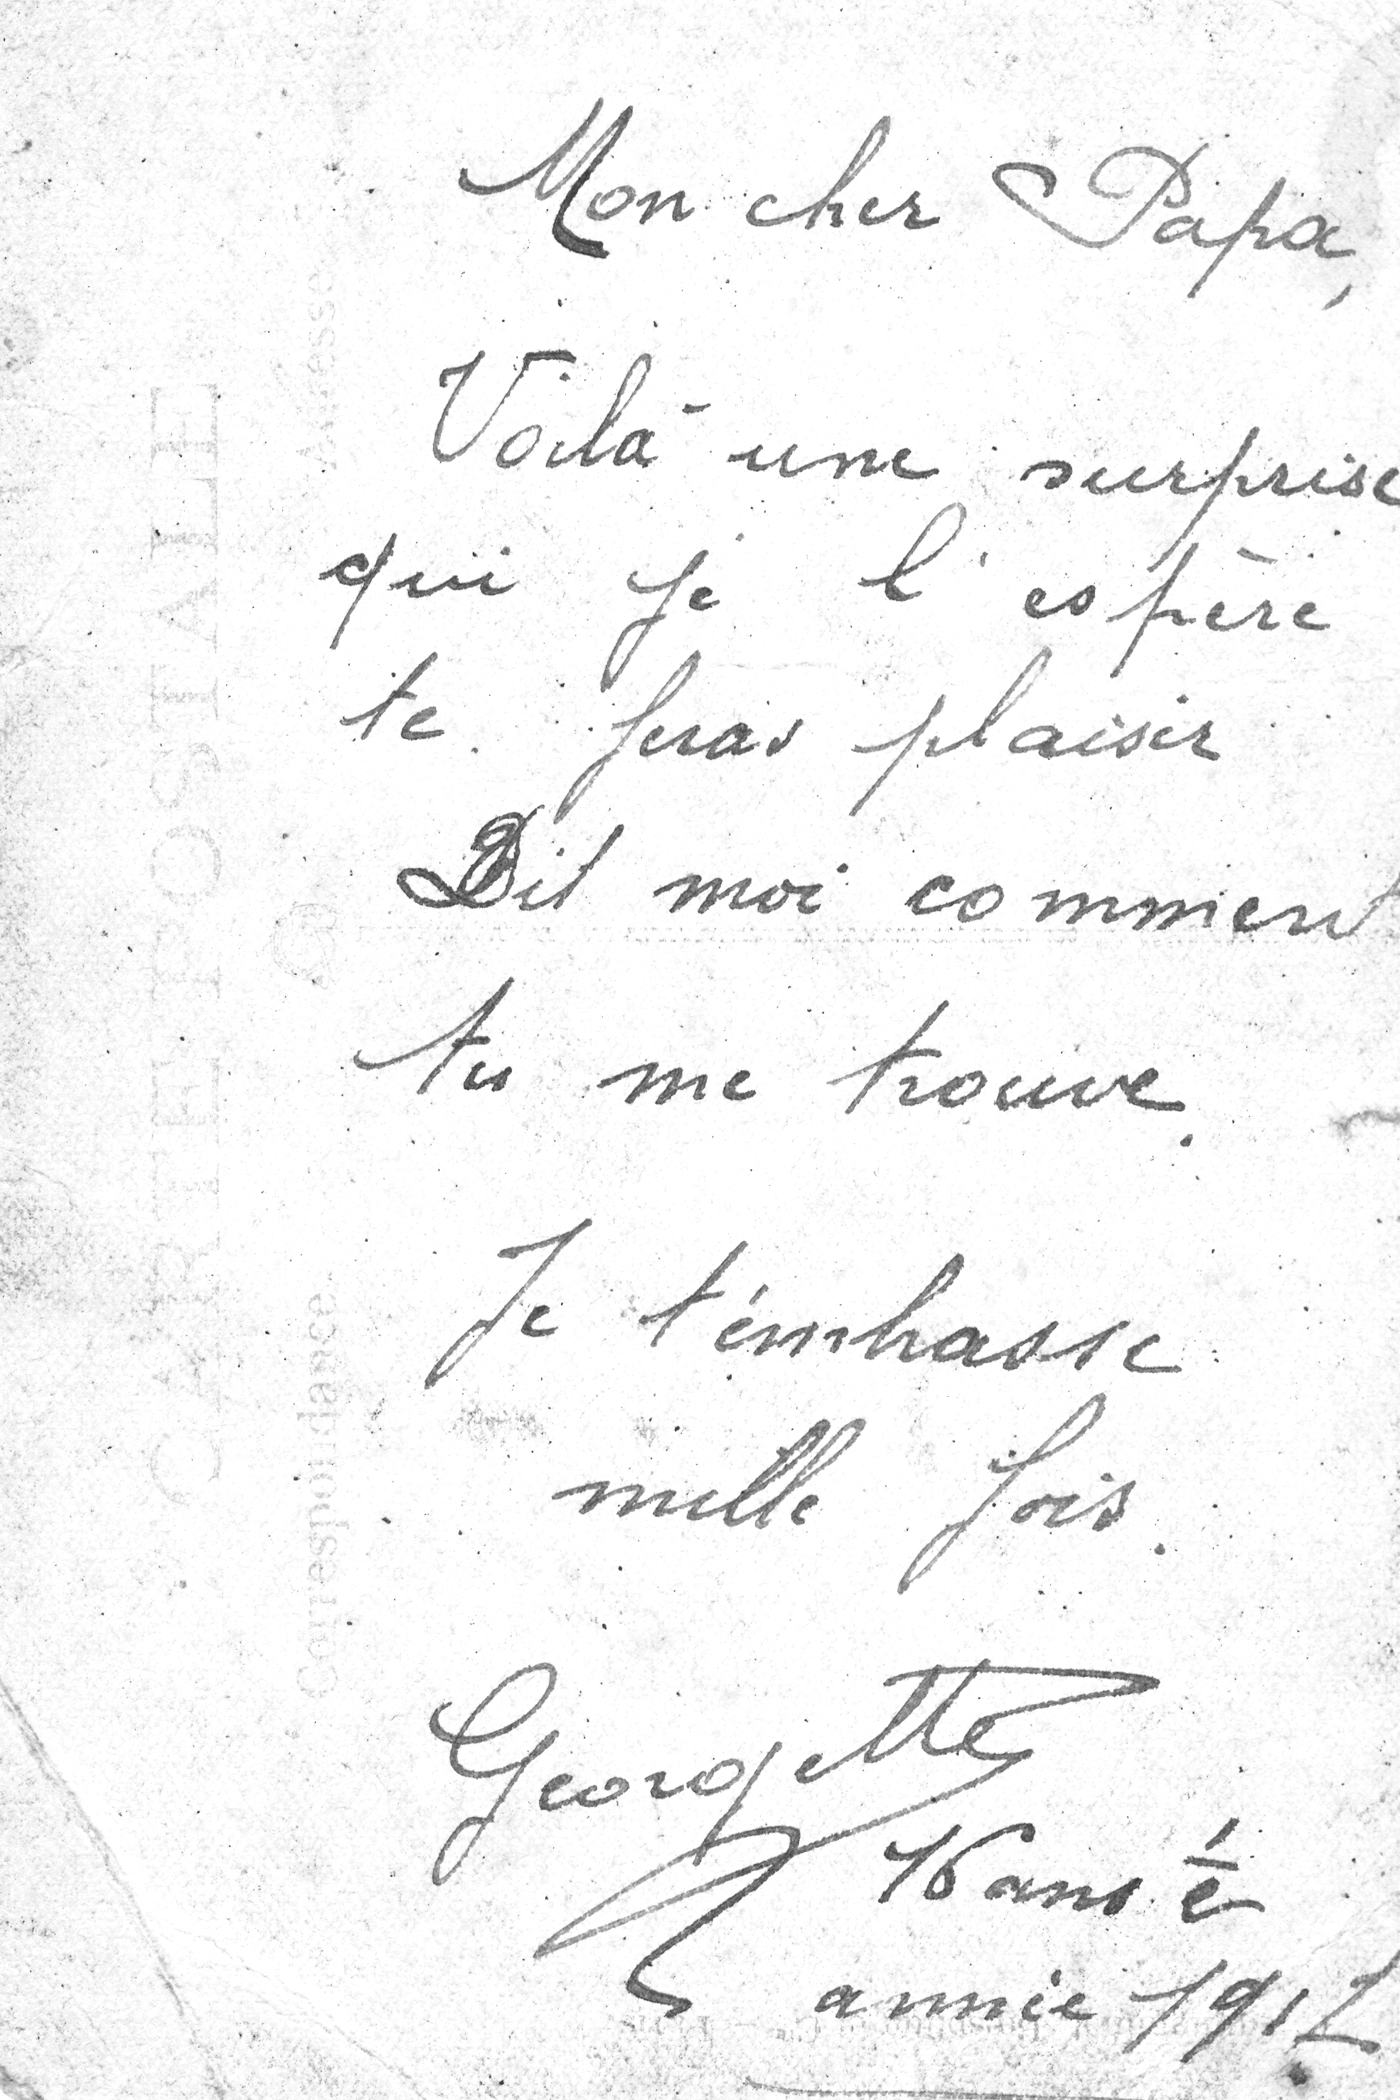 Mon cher Papa,
Voilà une surprise
qui je l'espère
te feras plaisir
Dit moi comment
tu me trouve.
Je t'émbasse
mille fois.
Georgette
16 ans é
annie 1912
CARTE POSTALE
Correspondance
Adresse